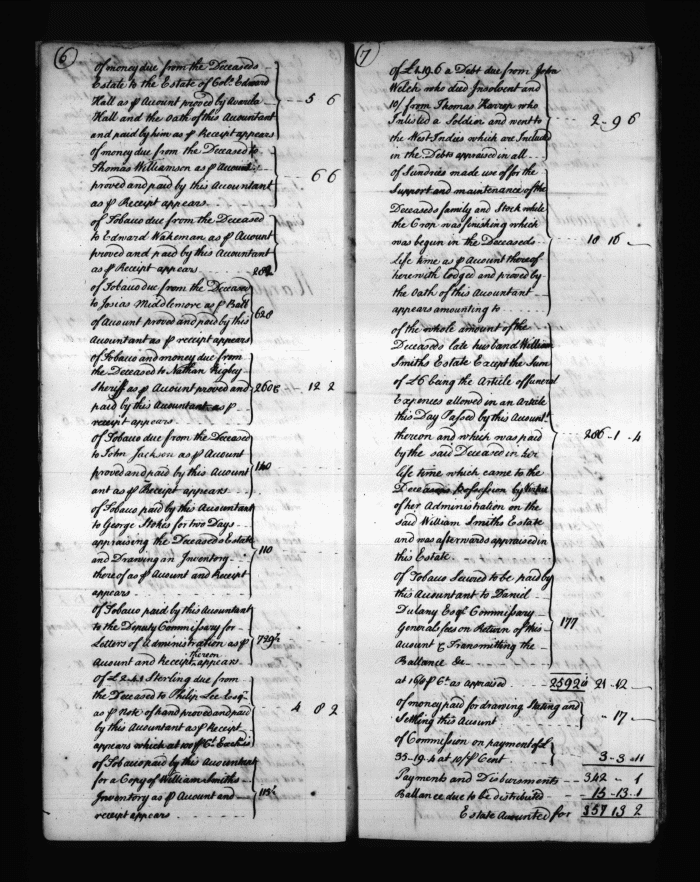 6
of money due from the Deceaseds
Estate to the Estate of Colo. Edward
Hall as ⅌ Account proved by
Hall and the Oath of this Accountant - - 5 6
and paid by him as ⅌ Receipt appears
of money due from the Deceased to
Thomas Williamson as ⅌ Account
proved and paid by this Accountant 6 6
as ⅌ Receipt appears
of Tobacco due from the Deceased
to Edward Wakeman as ⅌ Account
proved and paid by this Accountant
as ⅌ Receipt appears
of Tobacco due from the Deceased
to Josias Middlemore as ⅌ Ball
of Account proved and paid by this 628
Accountant as ⅌ receipt appears
of Tobacco and money due from
the Deceased to Nathan Rigbey
Sheriff as ⅌ Account proved and 2608 - 12 2
paid by this Accountant as ⅌
receipt appears
of Tobacco due from the Deceased
to John Jackson as ⅌ Account
proved and paid by this Account 140
ant as ⅌ Receipt appears
of Tobacco paid by this Accountant
to George Stokes for two Days
appraising the Deceaseds Estate
and Drawing an Inventory 110
thereof as ⅌ Account and Receipt
appears
of Tobacco paid by this Accountant
to the Deputy Commissary for
Letters of Administration as ⅌ 729½
Account and Receipt thereon appears
of £2.4.1 Sterling due from
the Deceased to Philip Lee Esqr
as ⅌ Note of hand proved and paid 4 8 2
by this Accountant as ⅌ Receipt
appears which at 100 ⅌ Ct. Exch is
of Tobacco paid by this Accountant
for a Copy of William Smiths
Inventory as ⅌ Account and
receipt appears
7
of £1.19.6 a Debt due from John
Welch who died Insolvent and
10/ from Thomas Harrep who
Inlisted a Soldier and went to 2 - 9 6
the West Indies which are Includ
in the Debts appraised in all
of Sundries made use of for the
Support and maintenance of the
Deceaseds family and Stock while
the Crop was finishing which
was begun in the Deceaseds 10 16 -
life time as ⅌ Account thereof
herewith Lodged and proved by
the Oath of this Accountant
appears amounting to
of the whole amount of the
Deceaseds late husband William
Smiths Estate Except the Sum
of £6 being the Article of funeral
Expences allowed in an Article
this Day Passed by this Accountt.
thereon and which was paid 206 - 1 - 4
by the said Deceased in her
life time which came to the
Deceaseds Possession by Virtue
of her Administration on the
Said William Smiths Estate
and was afterwards appraised in
this Estate
of Tobacco Secured to be paid by
this Accountant to Daniel
Dulany Esqr. Commissary
Generals fees on Return of this 177
Account & Transmitting the
Ballance &c
at ⅌ Ct. as appraised 2592 21 - 12 -
of money paid for drawing Stating and
Settling this Account " 17 -
of Commission on payment of £
35-19-4 at 10 ⅌ Cent 3 - 3 - 11
Payments and Disbursments 342 - 1
Ballance due to be distributed 15 - 13 - 1
Estate Accounted for 357 13 2